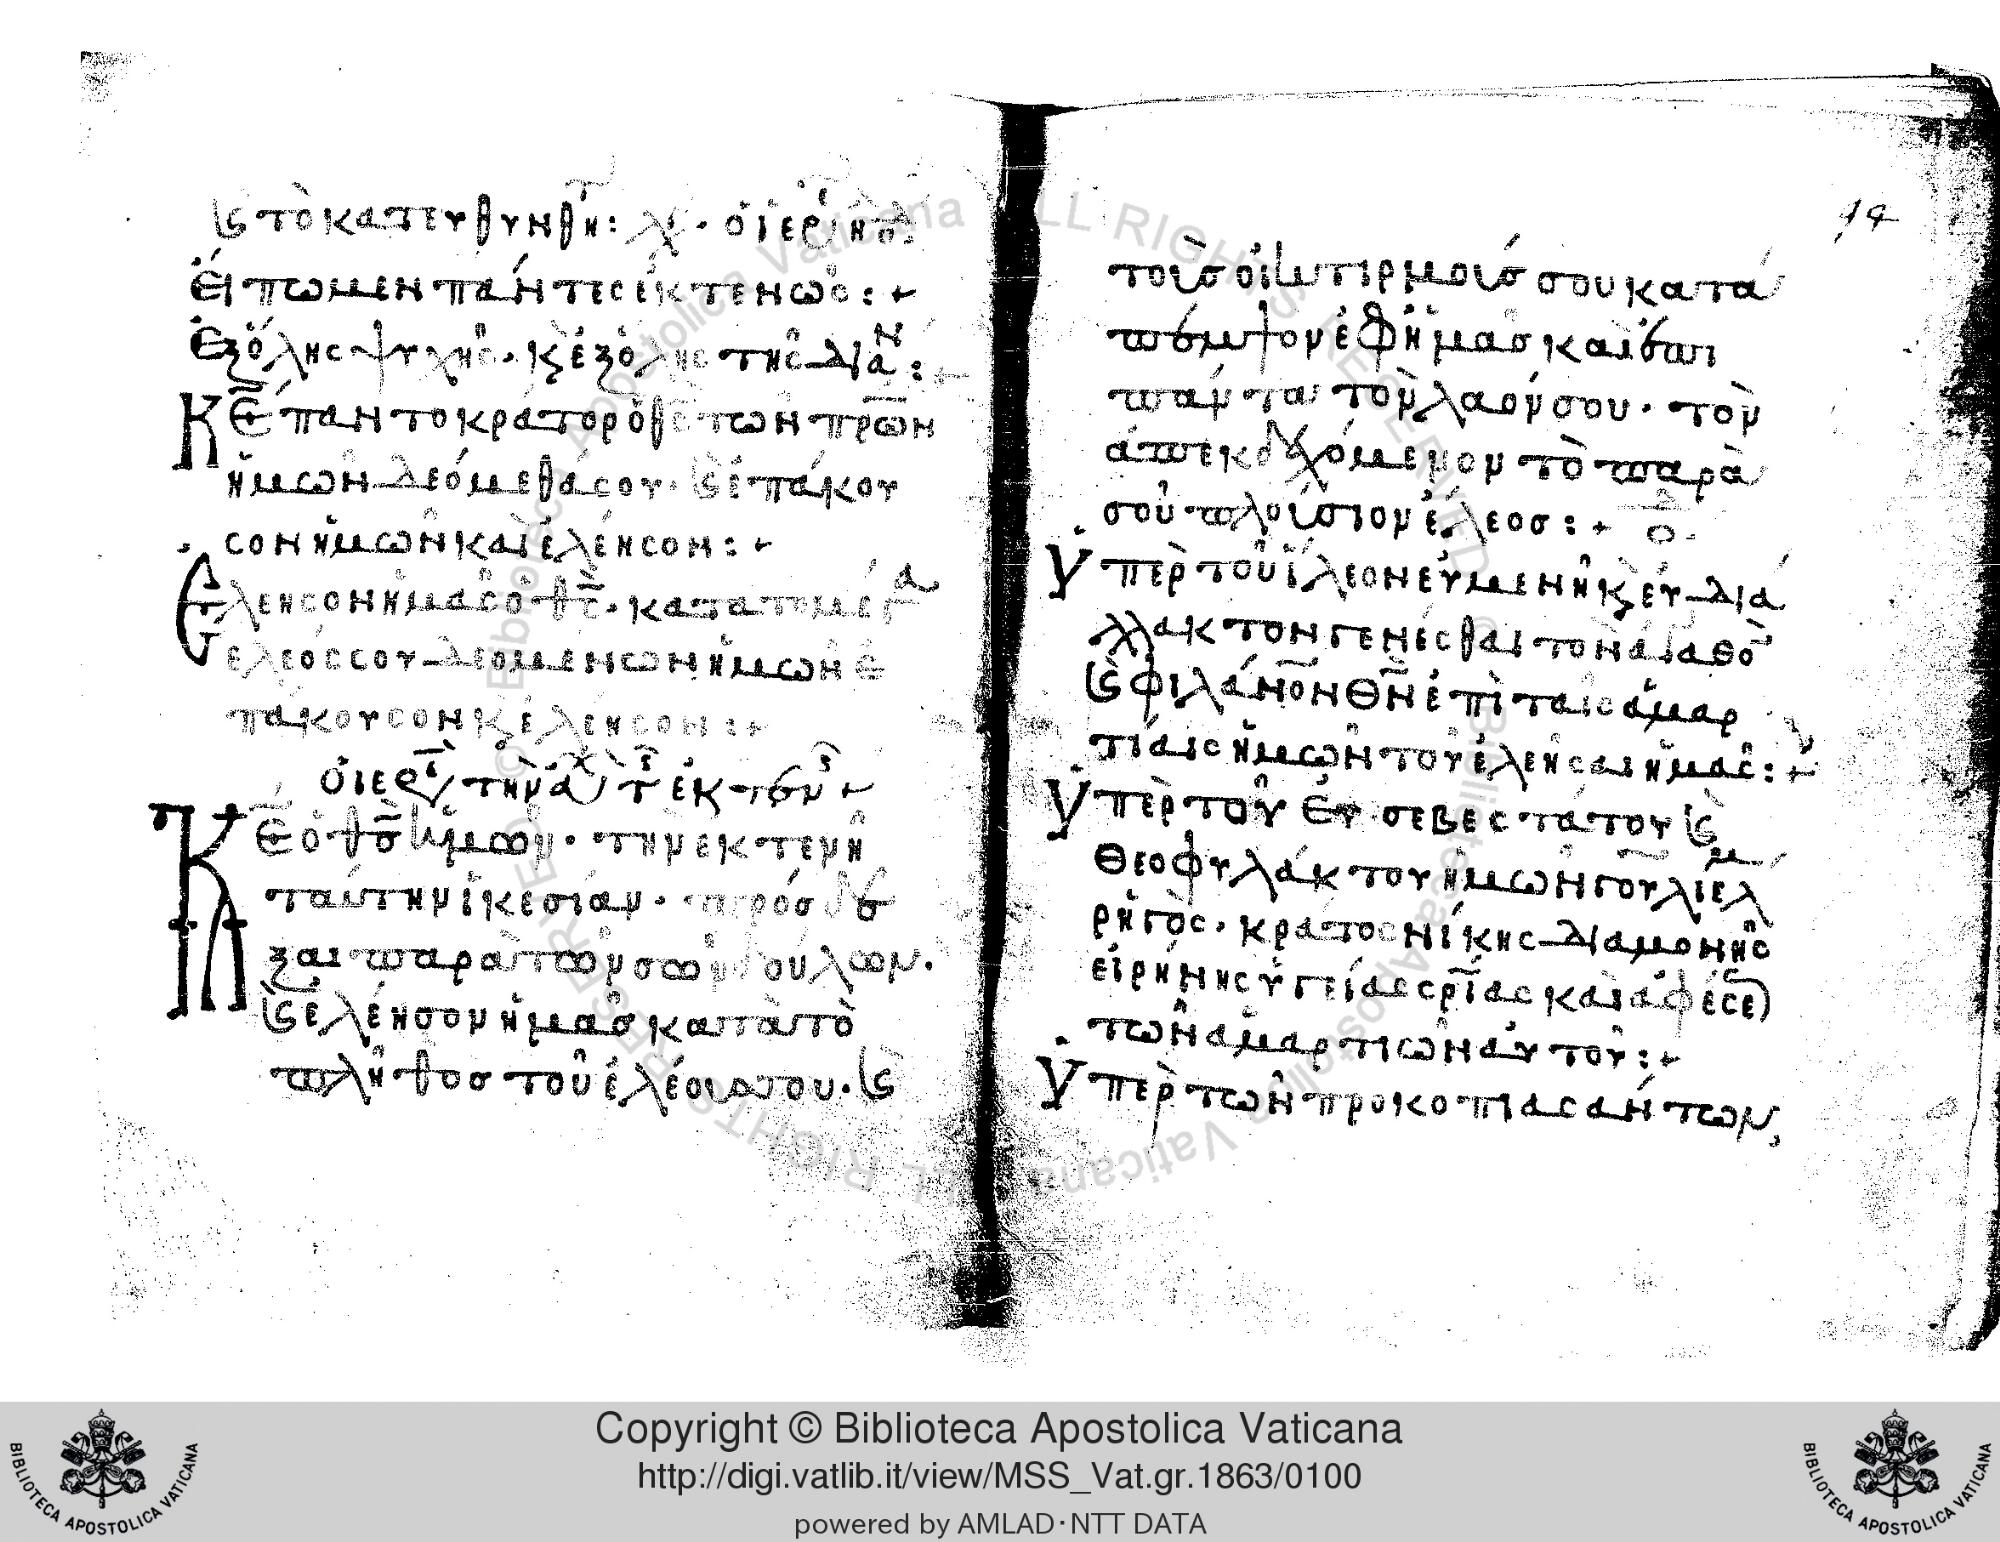 ϗ τὸ κατευθυνθῆ: οἱερ
Εἴπωμεν πάντες ἐκτενῶσ:+
Ἐξόλης ψυχῆς· κ ἐξόλης τῆς διαν:
Κε παντοκράτορ ὁ θς τῶν πρων
ἡμῶν δεόμεθά σου· ϗ ἐπάκου
σον ἡμῶν καὶ ἐλέησον:+
Ἐλέησον ἡμᾶς ὁ θς· κατα το μέγα
ἔλεός σου δεομεν σων ἡμῶν ἐ
πάκουσον κ ἐλέησον:+
Κε ὁ θσ ἡμῶν· τὴν ἐκτενῆ
ταύτην ἱκεσίαν· πρόσδε
ξαι παρὰ τῶν σῶν δούλων·
ϗ ἐλέησον ἡμᾶσ κατὰ τὸ
πλῆθοσ τοῦ ἐλέουσ σου· ϗ
19
τοὺσ οἰκτιρμούσ σου κατά
πεμψον ἐφ ἡμᾶσ καὶ ἐπι
πάντα τὸν λαόν σου· τὸν
ἀπεκδεχόμενον τὸ παρὰ
σοῦ πλούσιον ἔλεοσ:+
Ὑπὲρ τοῦ ἵλεον εὐμενῆ κ εὐδιά
λλακτον γενέσθαι τὸν ἀγαθὸ
ϗ φιλάνον Θν ἐπὶ ταῖς ἁμαρ
τίαις ἡμῶν τοῦ ἐλεῆσαι ἡμᾶς:+
Ὑπὲρ τοῦ Ευσεβεστάτου ϗ
θεοφυλάκτου ἡμῶν γουλιέλμ
ρηγὸς· κράτος νίκης διαμονῆς
εἰρήνης ὑγείας σρίας καὶ ἀφέσε
τῶν ἁμαρτιῶν αὐτοῦ:+
Ὑπὲρ τῶν προκοπιασάντων,
Copyright © Biblioteca Apostolica Vaticana
http://digi.vatlib.it/view/MSS_Vat.gr.1863/0100
powered by AMLAD·NTT DATA
BIBLIOTECA APOSTOLICA VATICANA
BIBLIOTECA APOSTOLICA VATICANA